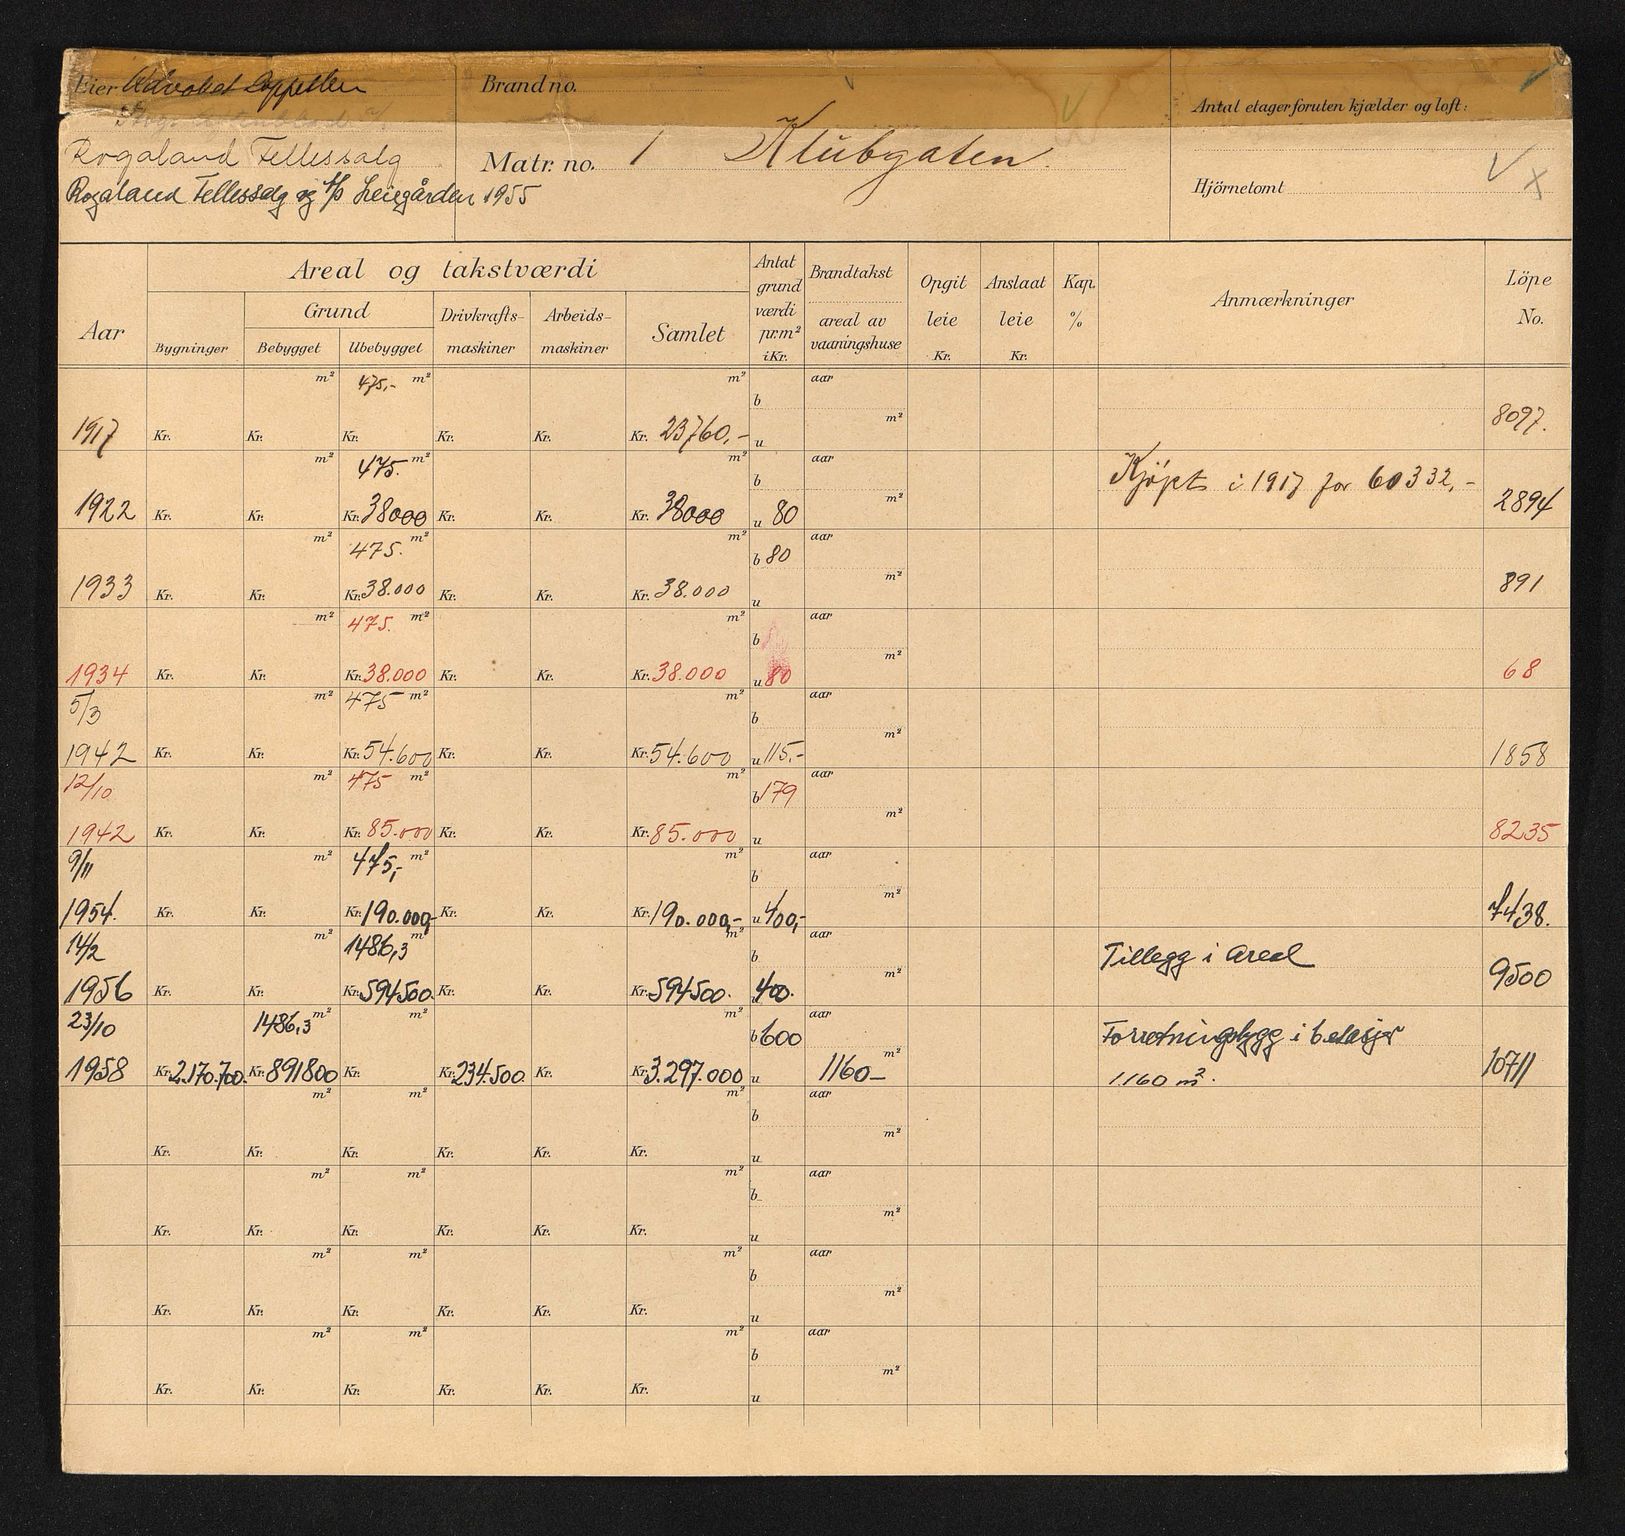 Eier Advokat Cappelen
Brand no.
Antal etager foruten kjælder og loft:
Rogaland Fellessalg
Matr. no. 1 Klubgaten
Rogaland Fellessalg og A/S Leiegården 1955
Hjörnetomt V X
Areal og takstværdi
Aar Bygninger Grund Bebygget Ubebygget Drivkrafts-maskiner Arbeids-maskiner Samlet Antat grund værdi pr.m² i Kr. Brandtakst areal av vaaningshuse Opgit leie Kr. Anslaat leie Kr. Kap. % Anmærkninger Löpe No.
m² 475,- m² m² aar
b m²
1917 Kr. Kr. Kr. Kr. Kr. Kr. 23760,- u 8097.
m² 475. m² m² aar
b m² Kjøpt i 1917 for 60332,-
1922 Kr. Kr. Kr. 38000 Kr. Kr. Kr. 38000 u 80 2894
m² 475. m² m² aar
b 80 m²
1933 Kr. Kr. Kr. 38.000 Kr. Kr. Kr. 38.000 u 891
m² 475. m² m² aar
b m²
1934 Kr. Kr. Kr. 38.000 Kr. Kr. Kr. 38.000 u 80 68
5/3 m² 475 m² m² aar
b m²
1942 Kr. Kr. Kr. 54.600 Kr. Kr. Kr. 54.600 u 115,- 1858
12/10 m² 475 m² m² aar
b 179 m²
1942 Kr. Kr. Kr. 85.000 Kr. Kr. Kr. 85.000 u 8235
9/11 m² 475,- m² m² aar
b m²
1954. Kr. Kr. Kr. 190.000,- Kr. Kr. Kr. 190.000,- u 400,- 7438.
14/2 m² 1486,3 m² m² aar
b m² Tillegg i areal
1956 Kr. Kr. Kr. 594500. Kr. Kr. Kr. 594500. 400. 9500
23/10 1486,3 m² m² m² aar
b 600 m² Forretningsbygg i 6 etasjer
1958 Kr. 2.170.700. Kr. 891800 Kr. Kr. 234.500. Kr. Kr. 3.297.000 u 1160- 1.160 m². 10711
m² m² m² aar
b m²
Kr. Kr. Kr. Kr. Kr. Kr. u
m² m² m² aar
b m²
Kr. Kr. Kr. Kr. Kr. Kr. u
m² m² m² aar
b m²
Kr. Kr. Kr. Kr. Kr. Kr. u
m² m² m² aar
b m²
Kr. Kr. Kr. Kr. Kr. Kr. u